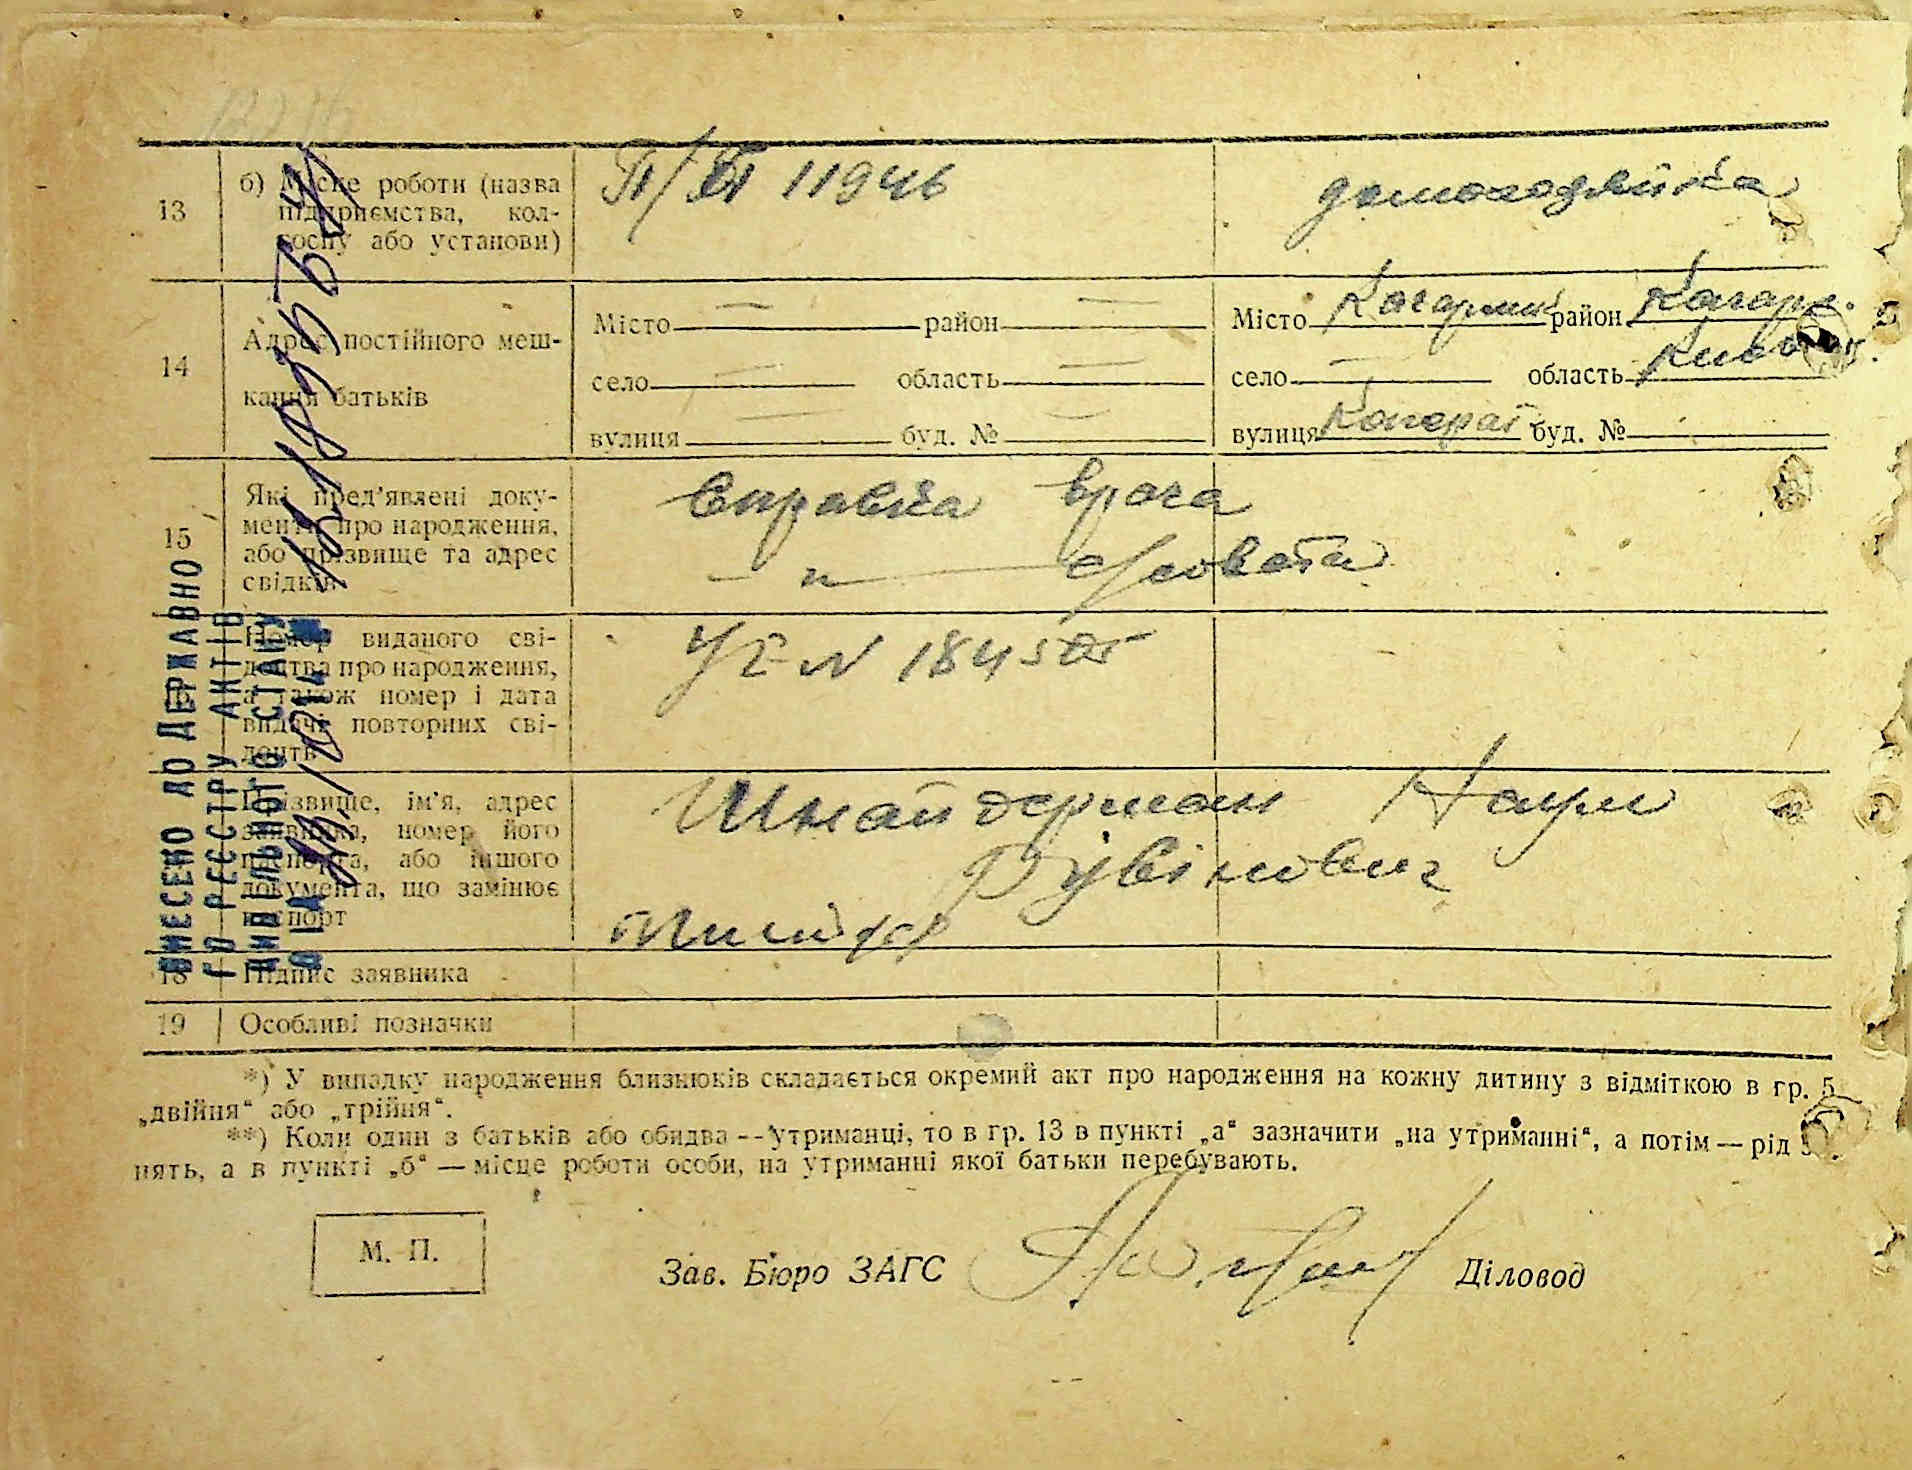 13
б) Місце роботи (назва
підприємства, кол-
госпу або установи)
П/я 11946
домогоспвійка
14
Адрес постійного меш-
кання батьків
Місто — район —
село — область —
вулиця — буд. № —
Місто Кагарлик район Кагарл.
село — область Київськ.
вулиця буд. №
15
Які пред'явлені доку-
менти про народження,
або прізвище та адрес
свідків
Справка врача
— " —
Номер виданого сві-
доцтва про народження,
а також номер і дата
видачі повторних сві-
доцтв
N 1845
Прізвище, ім'я, адрес
заявника, номер його
паспорта, або іншого
документа, що замінює
паспорт
Шнайдерман Наум
Рувінович
18
Підпис заявника
19
Особливі позначки
ВНЕСЕНО ДО ДЕРЖАВНО
ГО РЕЄСТРУ АКТІВ
ЦИВІЛЬНОГО СТАНУ
*) У випадку народження близнюків складається окремий акт про народження на кожну дитину з відміткою в гр. 5
„двійня“ або „трійня“.
**) Коли один з батьків або обидва -- утриманці, то в гр. 13 в пункті „а“ зазначити „на утриманні“, а потім — рід
нять, а в пункті „б“ — місце роботи особи, на утриманні якої батьки перебувають.
М. П.
Зав. Бюро ЗАГС
Діловод